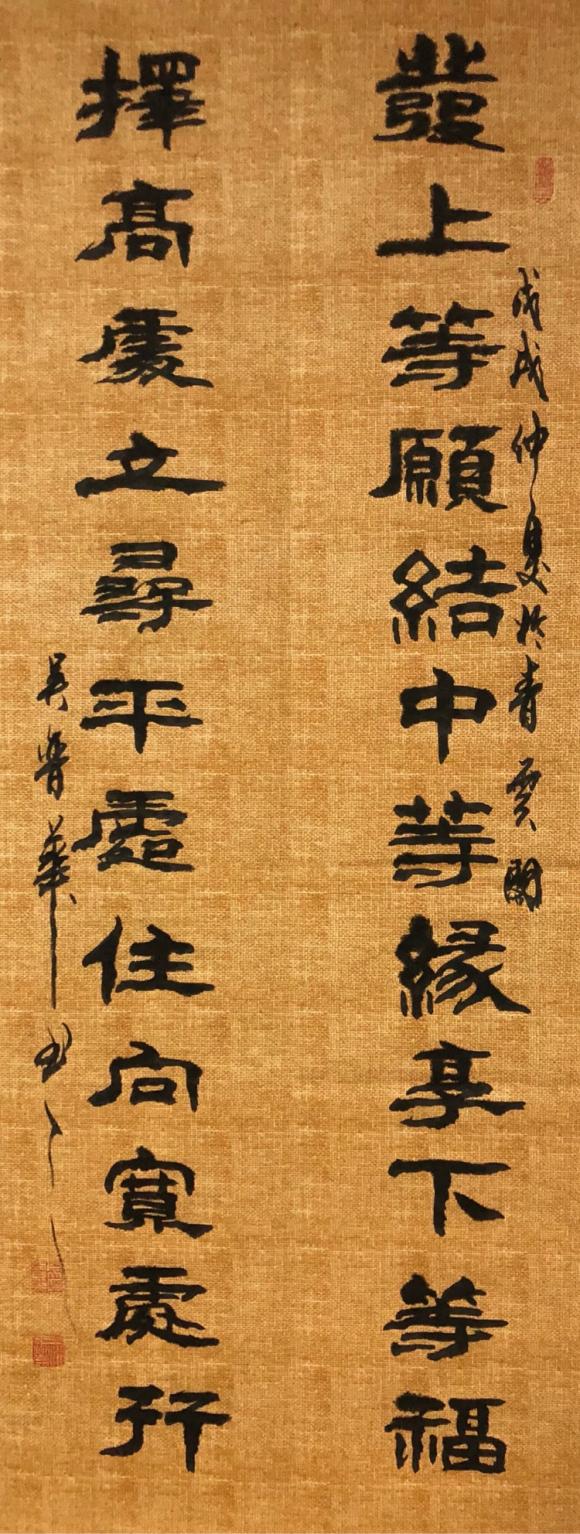 發上等願結中等緣享下等福
擇高處立尋平處住向寬處行
戊戌仲夏於青雲閣
吳晉華書